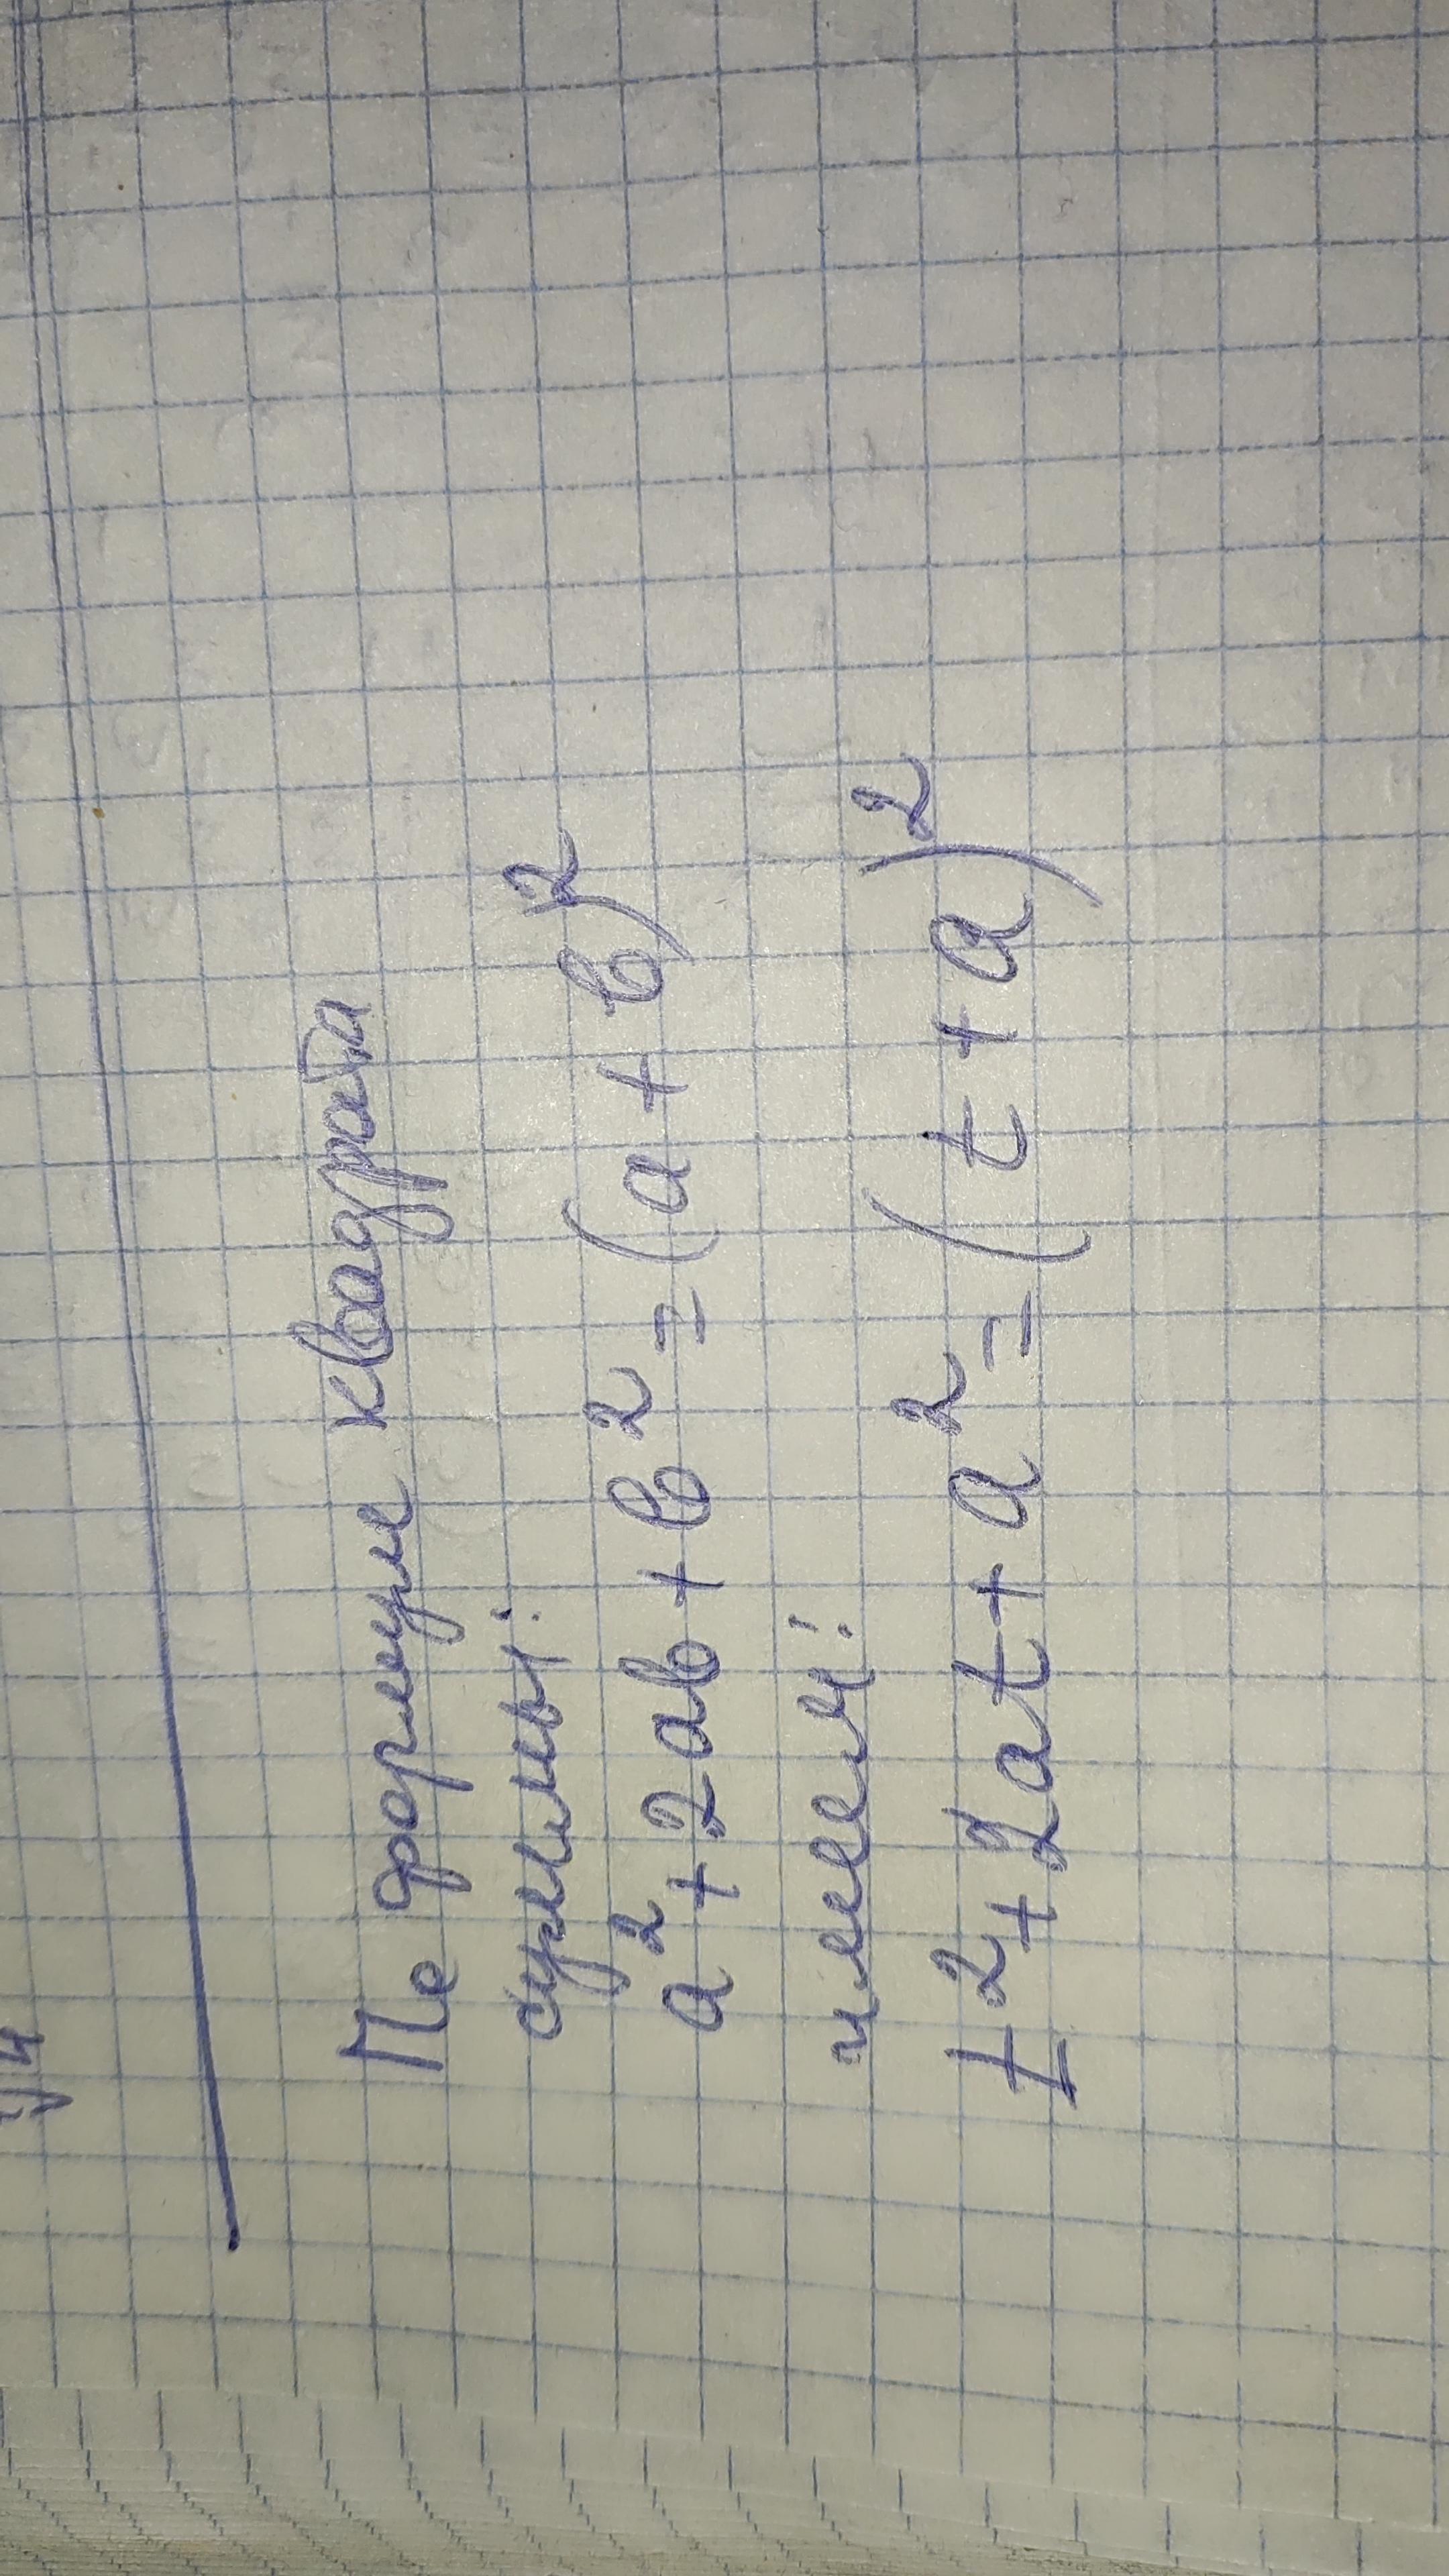 По формуле квадрата
суммы:
a² + 2ab + b² = (a + b)²
имеем:
t² + 2at + a² = (t + a)²